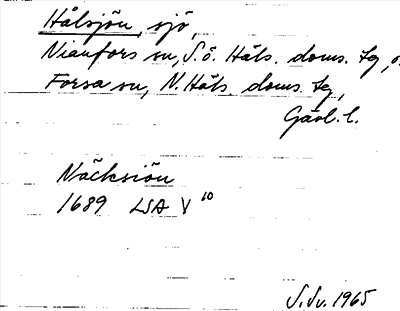 Hålsjön, sjö,
Nianfors sn, S.ö. Häls. doms. tg, o.
Forsa sn, N. Häls. doms. tg,
Gävl. l.
Näcksiön
1689 LSA V 10
S.Sv. 1965